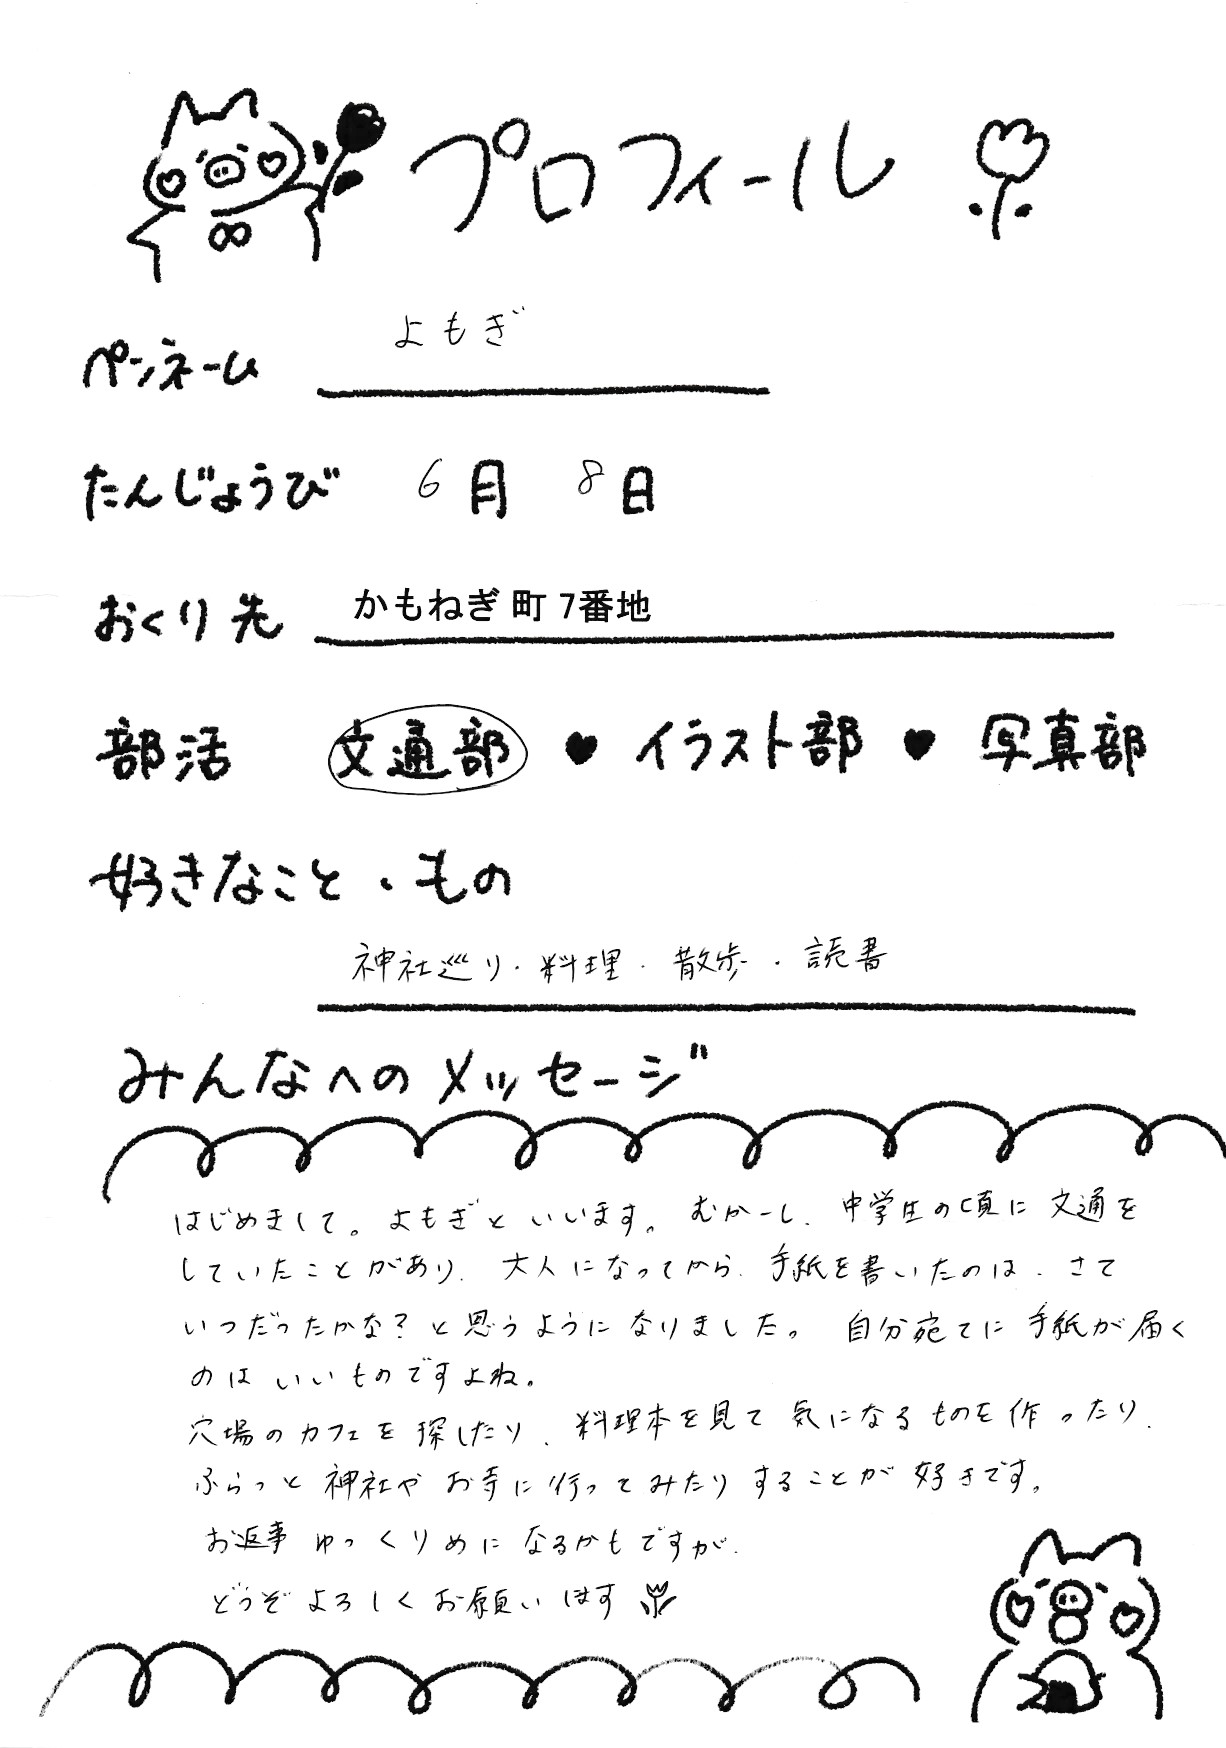 プロフィール
ペンネーム よもぎ
たんじょうび 6月 8日
おくり先 かもねぎ町 7番地
部活 文通部 ♥ イラスト部 ♥ 写真部
好きなこと・もの
神社巡り・料理・散歩・読書
みんなへのメッセージ
はじめまして。よもぎといいます。むかーし、中学生の頃に文通を
していたことがあり、大人になってから、手紙を書いたのは、さて
いつだったかな?と思うようになりました。自分宛てに手紙が届く
のはいいものですよね。
穴場のカフェを探したり、料理本を見て気になるものを作ったり、
ふらっと神社やお寺に行ってみたりすることが好きです。
お返事ゆっくりめになるかもですが、
どうぞよろしくお願いします